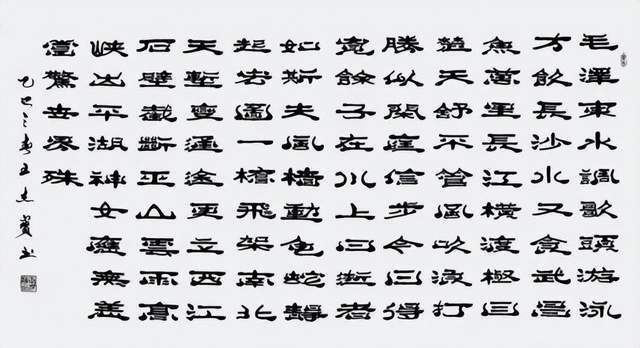 毛澤東水調歌頭游泳
方飲長沙水又食武昌
魚萬里長江橫渡極目
楚天舒不管風吹浪打
勝似閑庭信步今日得
寬餘子在川上曰逝者
如斯夫風檣動龜蛇靜
起宏圖一橋飛架南北
天塹變通途更立西江
石壁截斷巫山雲雨高
峽出平湖神女應無恙
當驚世界殊
乙巳之春王志書